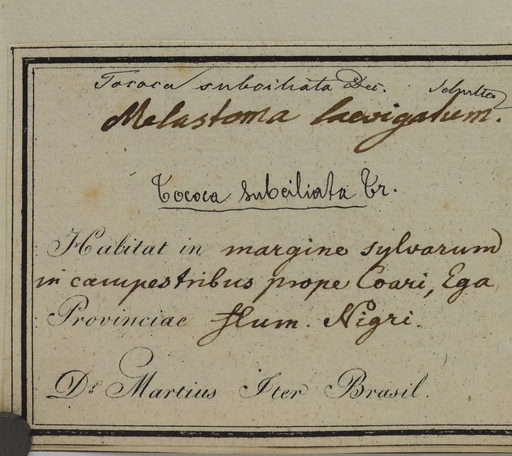 Tococa subciliata Dec. Schultes
Melastoma laevigatum.
Tococa subciliata Tr.
Habitat in margine sylvarum
in campestribus prope Coari, Ega
Provinciae flum. Nigri.
Dr Martius Iter Brasil.